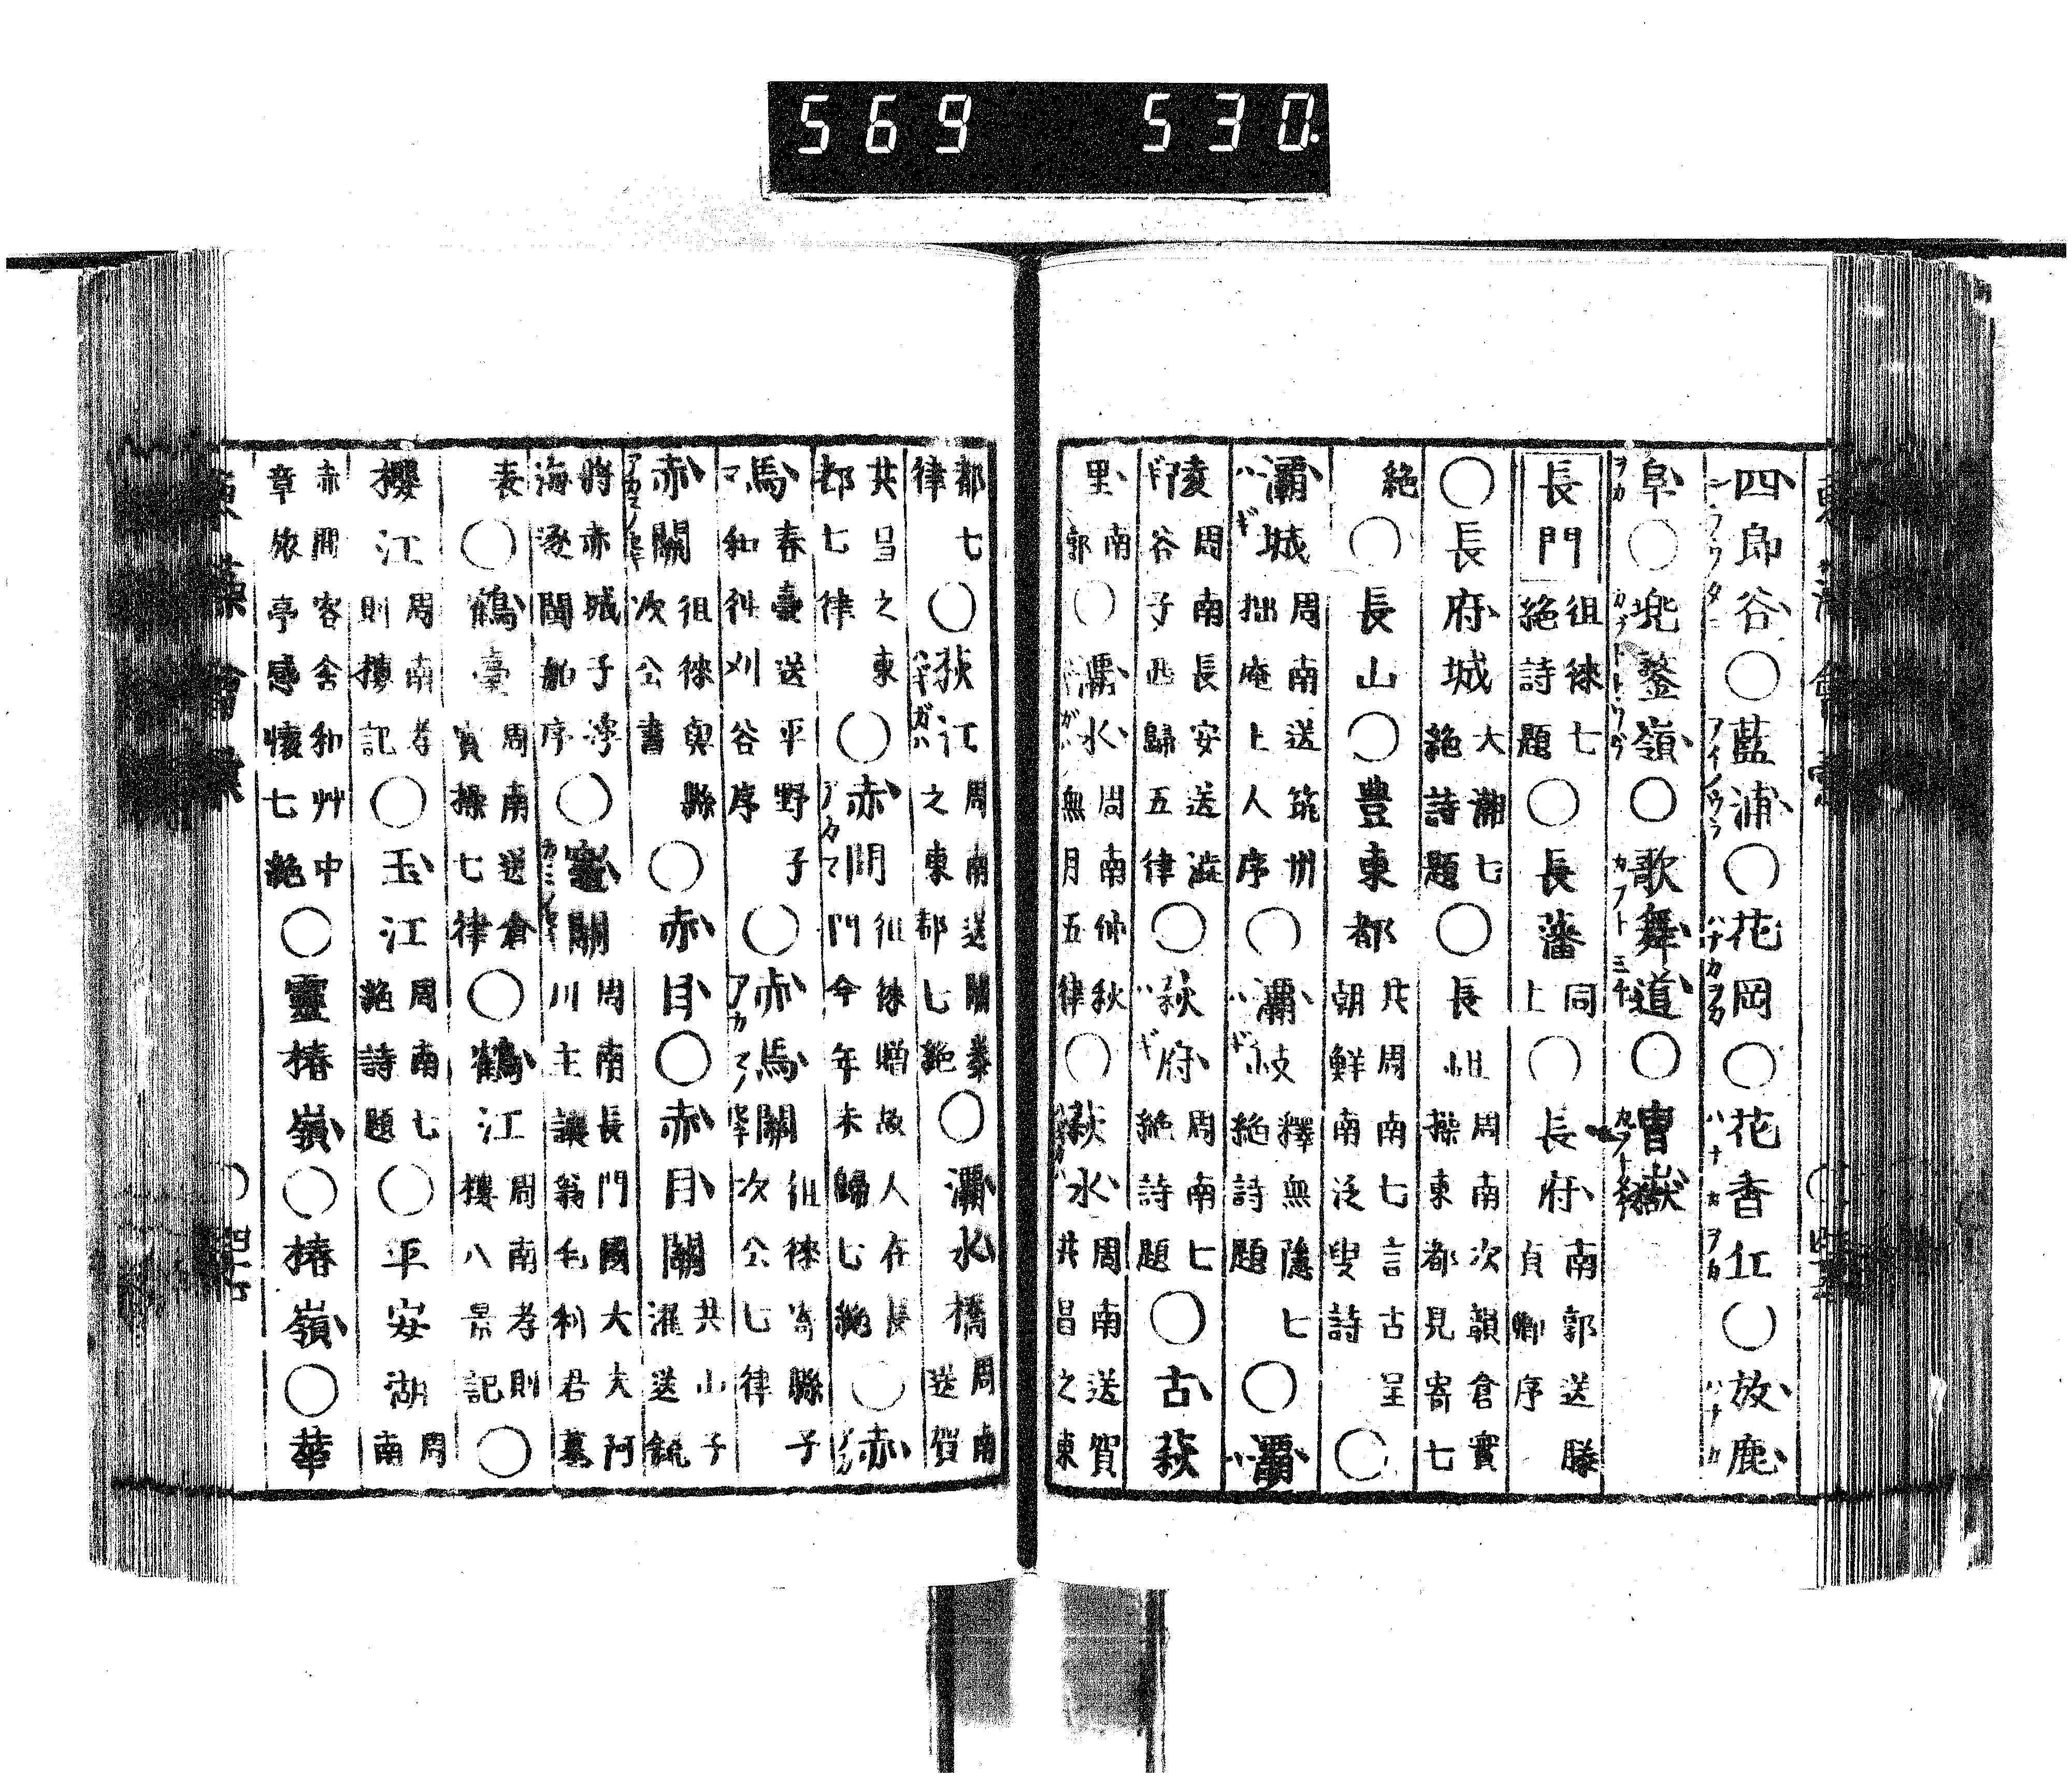 569 530.
四郎谷○藍浦○花岡○花香仜○放鹿
阜○兠鍪嶺○歌舞道○冑嶽
長門 徂徠七絶詩題○長藩 同上○長府 南郭送滕貞卿序
○長府城 大潮七絶詩題○長州 周南次韻倉實操東都見寄七
絶○長山○豊東都 共周南七言古呈朝鮮南泛叟詩○
灞城 周南送筑州拙庵上人序○灞岐 釋無隱七絶詩題○灞
陵 周南長安送滋谷子西歸五律○萩府 周南七絶詩題○古萩
里 南郭○灞水 周南仲秋無月五律○萩水 周南送賀共昌之東
都七律○萩江 周南送關泰之東都七絶○灞水橋 周南送賀
共昌之東都七律○赤間 徂徠贈故人在長門今年未歸七絶○赤
馬 春臺送平野子和徃刈谷序○赤馬關 徂徠寄縣次公七律
赤關 徂徠與縣次公書○赤目○赤目關 共山子濯送
將赤城子濘海遂閣舶序○竈關 周南長門國大夫阿川主讓翁毛利君墓
表○鶴臺 周南送倉實操七律○鶴江 周南孝則樓八景記○
櫻江 周南孝則樓記○玉江 周南七絶詩題○平安湖 周南
赤間客舍和艸中章依亭感懷七絶○靈椿嶺○椿嶺○華